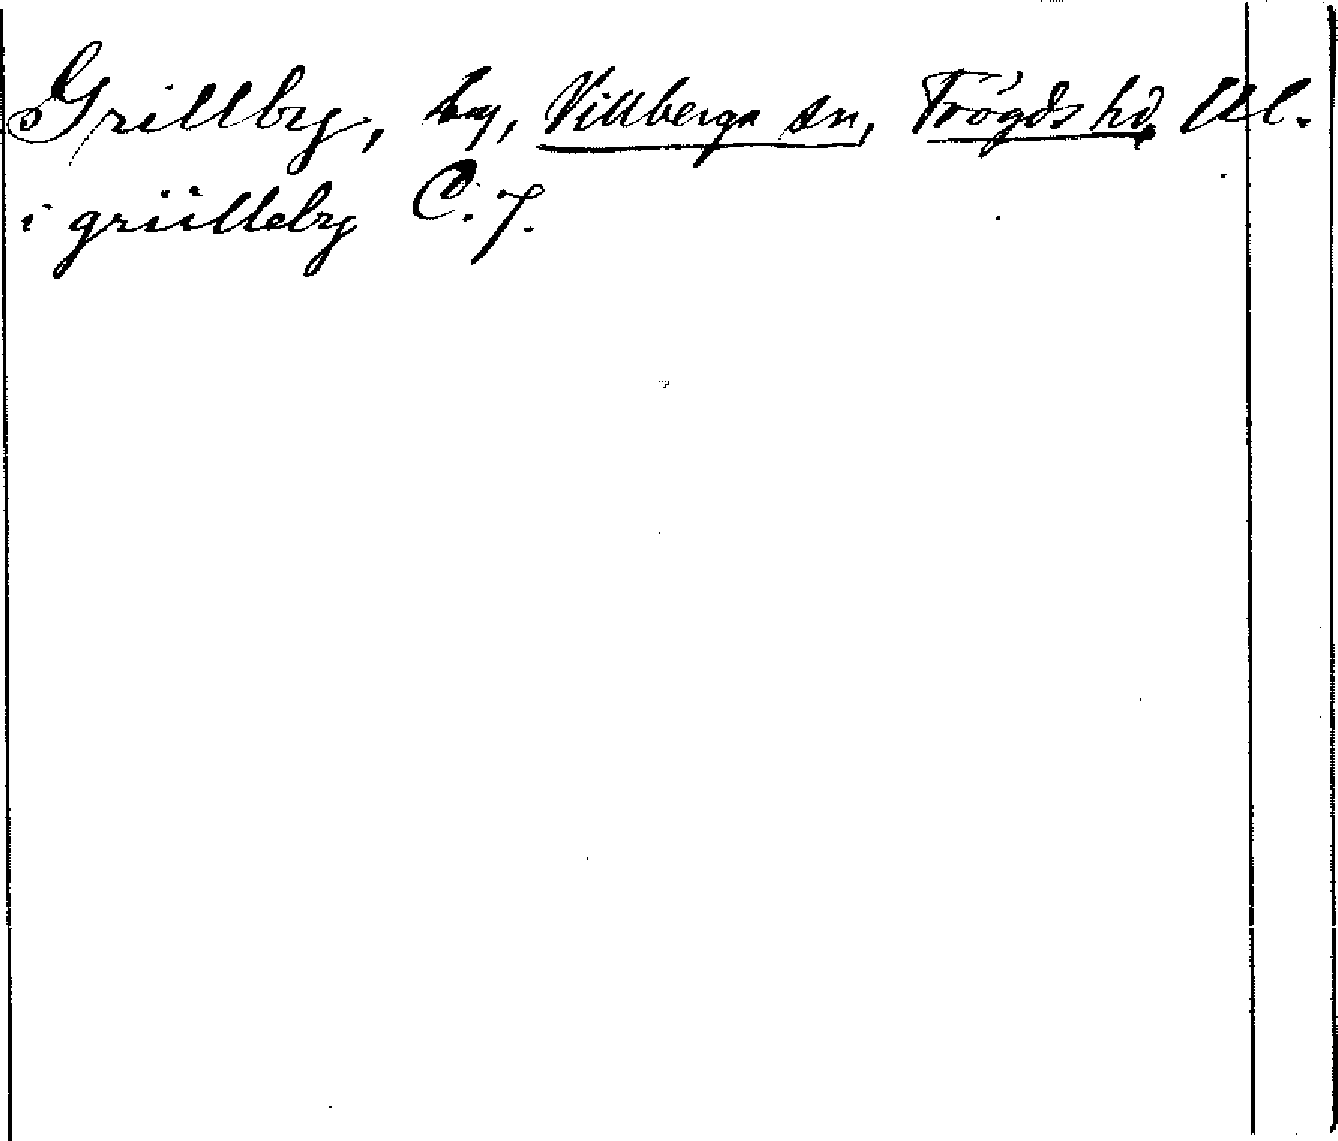 Grillby, by, Villberga sn, Trögds hd, Ul.
i griilleby C. 7.